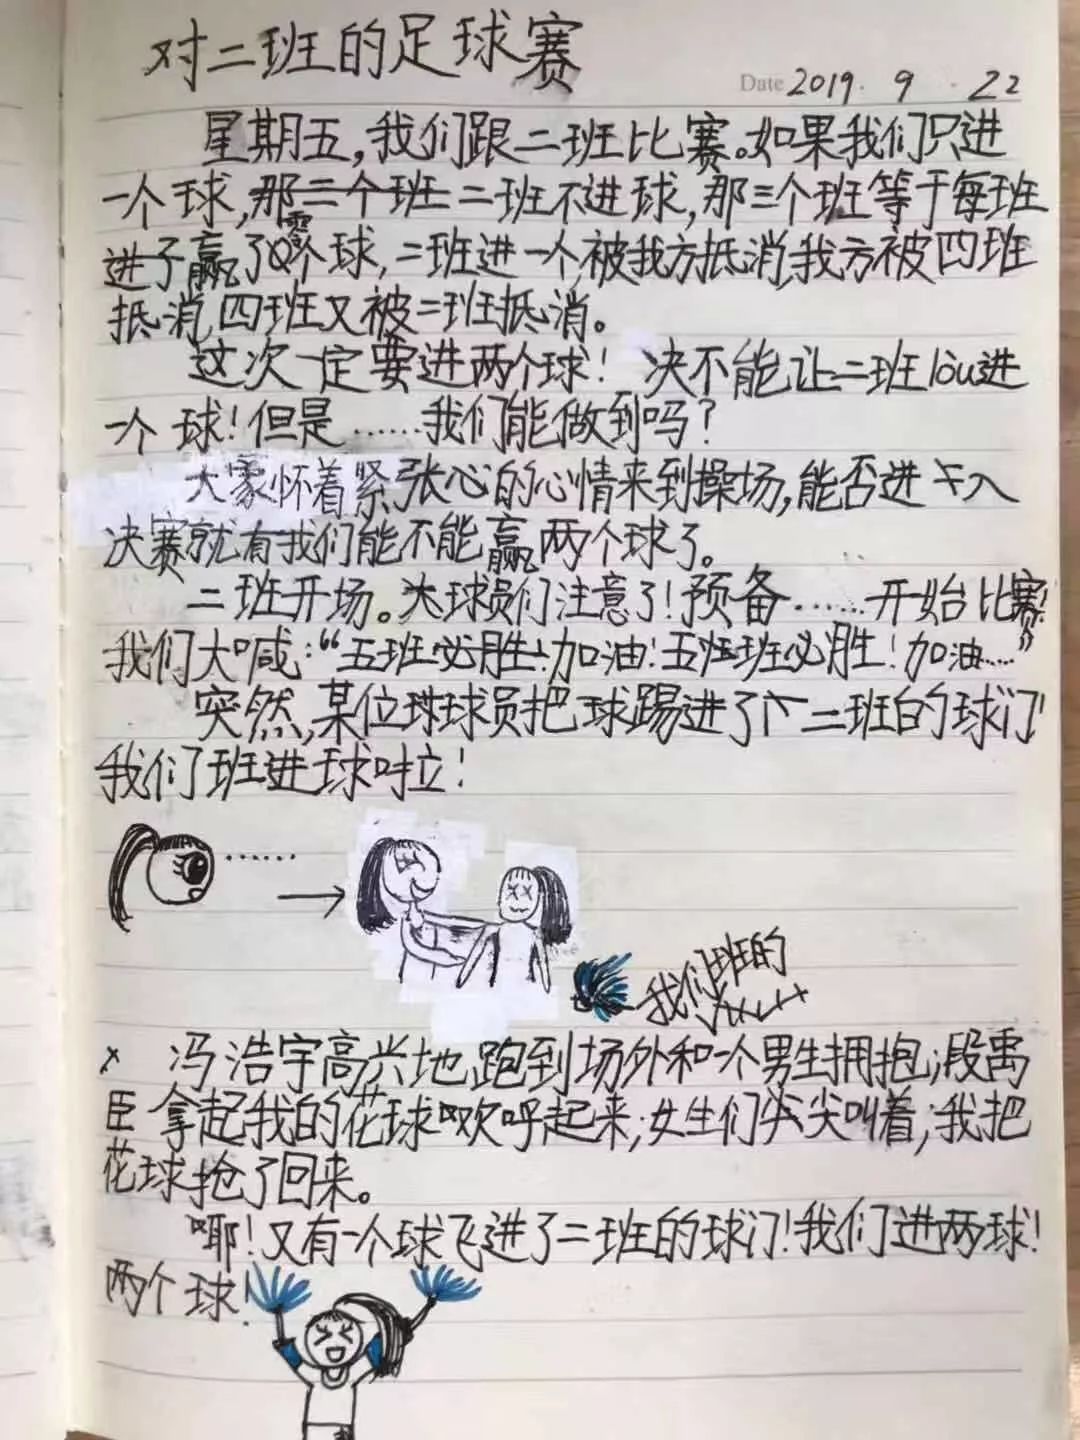 对二班的足球赛
Date 2019. 9 . 22
星期五,我们跟二班比赛。如果我们只进
一个球,那三个班二班不进球,那三个班等于每班
进了赢了零个球,二班进一个被我方抵消,我方被四班
抵消,四班又被二班抵消。
这次一定要进两个球!决不能让二班lòu进
一个球!但是……我们能做到吗?
大家怀着紧张心的心情来到操场,能否进入
决赛就有我们能不能赢两个球了。
二班开场。大球员们注意了!预备……开始比赛!
我们大喊:“五班必胜!加油!五班班必胜!加油……”
突然,某位球球员把球踢进了二班的球门!
我们班进球啦!
……
我们班的
冯浩宇高兴地跑到场外和一个男生拥抱;段禹
臣拿起我的花球欢呼起来;女生们尖尖叫着;我把
花球抢了回来。
耶!又有一个球飞进了二班的球门!我们进两球!
两个球!